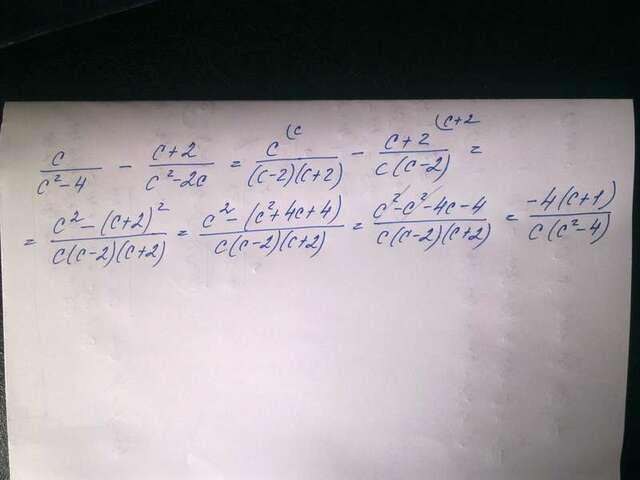 c/(c²-4) - (c+2)/(c²-2c) = c^(c/((c-2)(c+2)) - c+2^(c+2/(c(c-2)) =
= (c²-(c+2)²)/(c(c-2)(c+2)) = (c²-(c²+4c+4))/(c(c-2)(c+2)) = (c²-c²-4c-4)/(c(c-2)(c+2)) = -4(c+1)/(c(c²-4))